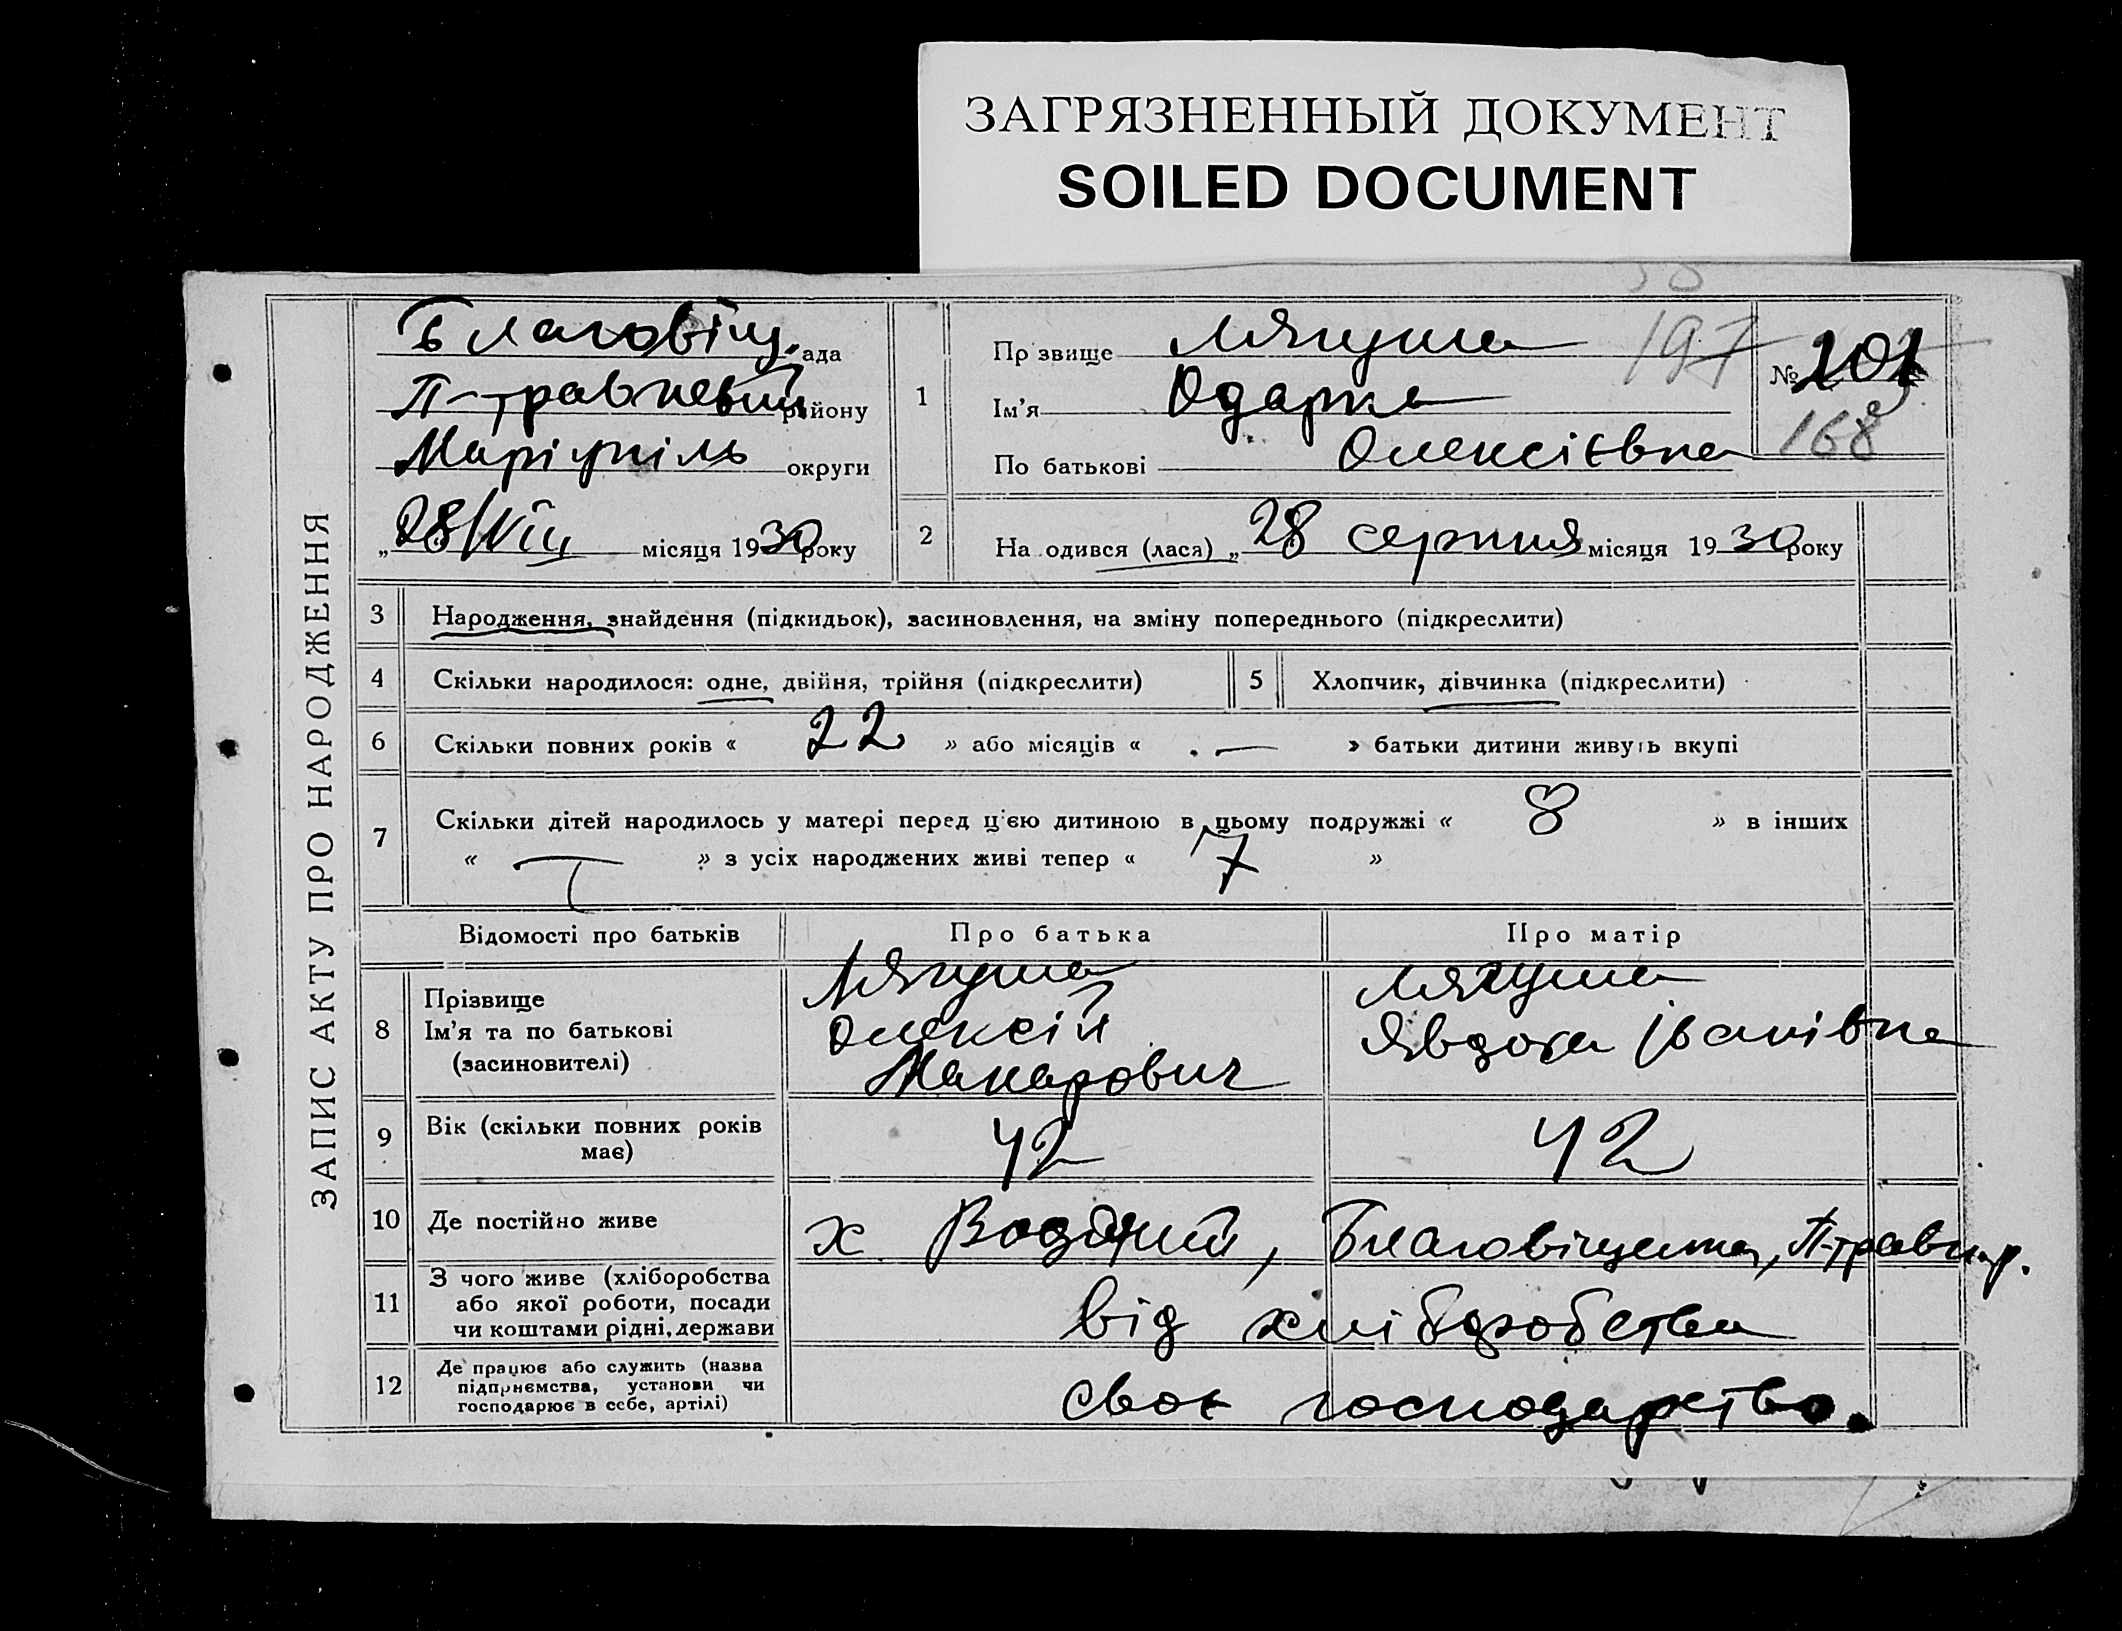 ЗАГРЯЗНЕННЫЙ ДОКУМЕНТ
SOILED DOCUMENT
ЗАПИС АКТУ ПРО НАРОДЖЕННЯ
Благовіщ. ада
П-травневий району
Маріупіль округи
„28/VIII місяця 1930 року
1
Пр звище Лягуша
197
Ім'я Одарка
По батькові Олексієвна
№ 168
2
На одився (лася) „28 серпня місяця 1930 року
3 Народження, знайдення (підкидьок), засиновлення, на зміну попереднього (підкреслити)
4 Скільки народилося: одне, двійня, трійня (підкреслити)
5 Хлопчик, дівчинка (підкреслити)
6 Скільки повних років « 22 » або місяців « — » батьки дитини живуть вкупі
7 Скільки дітей народилось у матері перед ц'єю дитиною в цьому подружжі « 8 » в інших
« — » з усіх народжених живі тепер « 7 »
Відомості про батьків Про батька Про матір
8 Прізвище
Ім'я та по батькові
(засиновителі)
Лягуша
Олексій
Макарович
Лягуша
Явдоха Іванівна
9 Вік (скільки повних років
має)
42 42
10 Де постійно живе х Водяний, Благовіщенка, П-травн. р.
11 З чого живе (хліборобства
або якої роботи, посади
чи коштами рідні, держави
від хліборобства
12 Де працює або служить (назва
підприємства, установи чи
господарює в себе, артілі)
своє господарство.